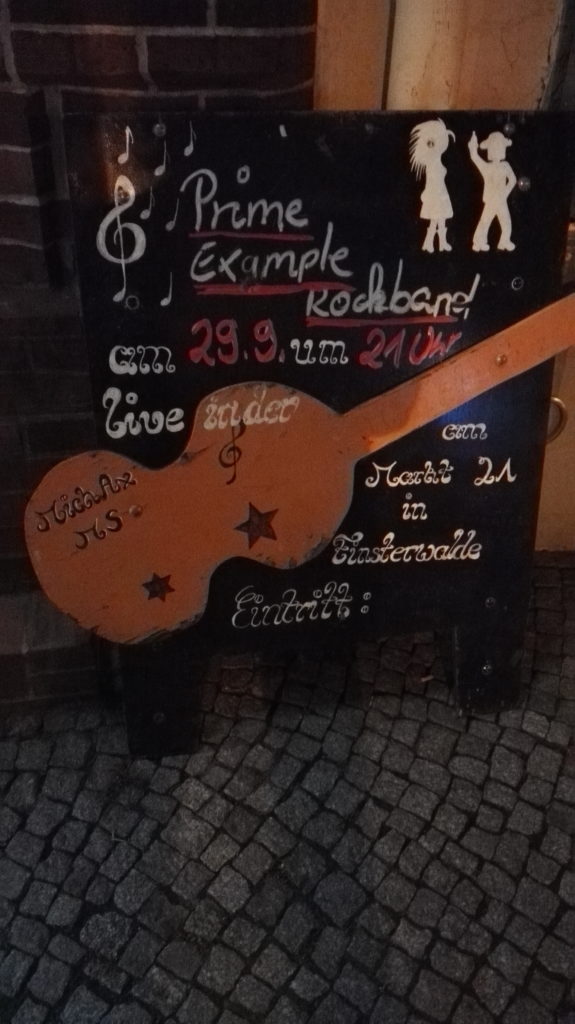 Prime
Example
Rockband
am 29.9. um 21 Uhr
Live in der
MichAx
MS
am
Markt 21
in
Finsterwalde
Eintritt: